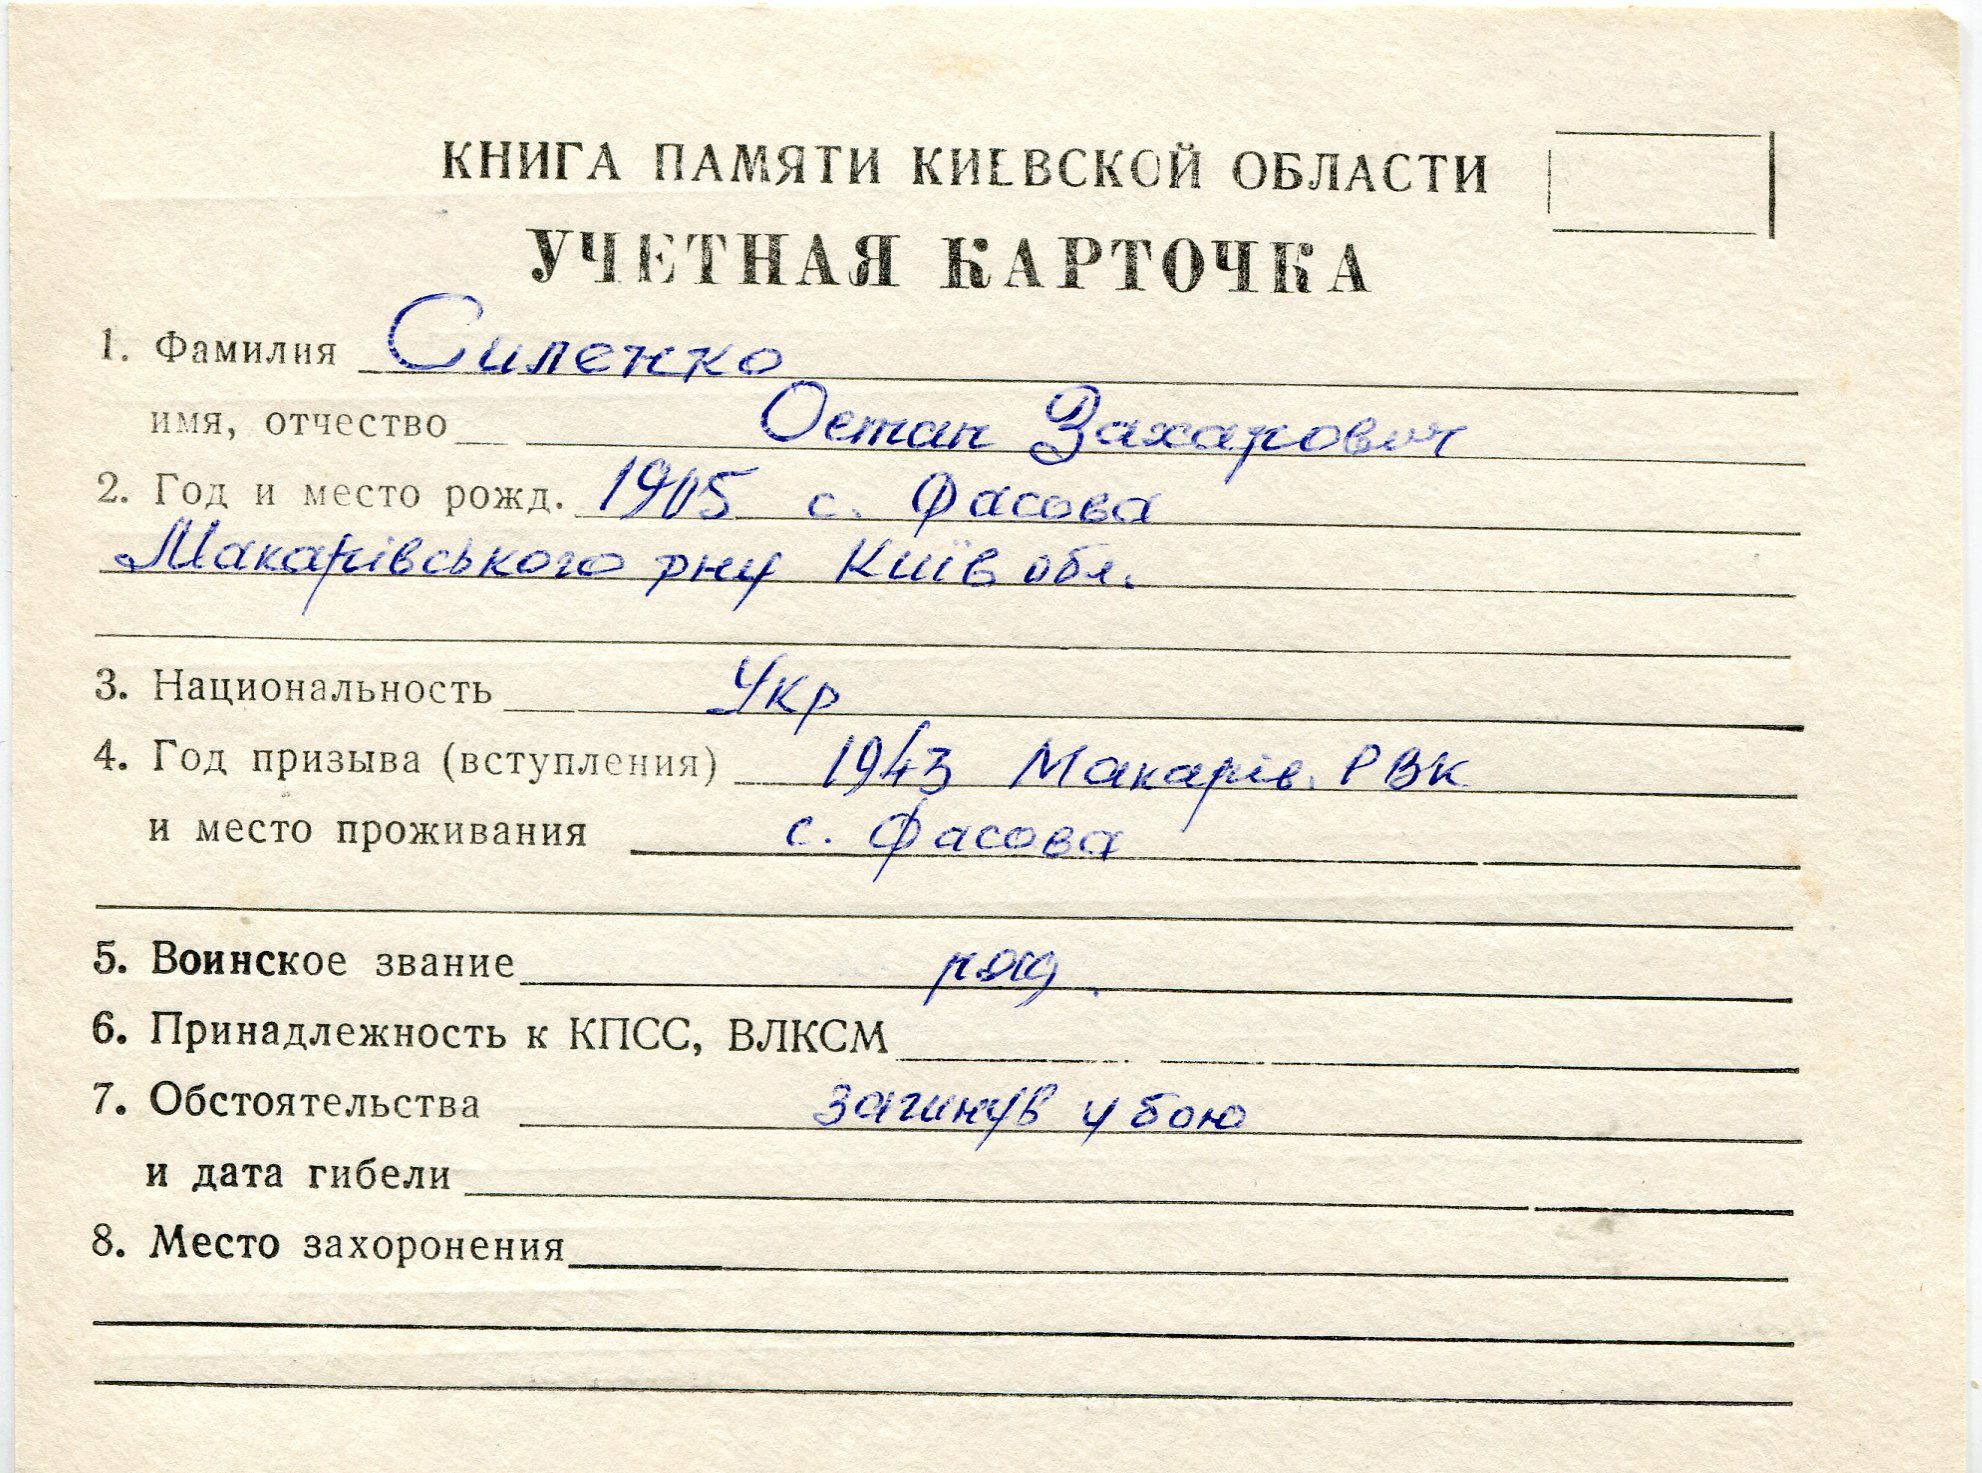 КНИГА ПАМЯТИ КИЕВСКОЙ ОБЛАСТИ
УЧЕТНАЯ КАРТОЧКА
1. Фамилия Силенко
имя, отчество Остап Захарович
2. Год и место рожд. 1905 с. Фасова
Макарівського рну Київ обл.
3. Национальность Укр
4. Год призыва (вступления) 1943 Макарів. РВК
и место проживания с. Фасова
5. Воинское звание ряд.
6. Принадлежность к КПСС, ВЛКСМ
7. Обстоятельства загинув у бою
и дата гибели
8. Место захоронения